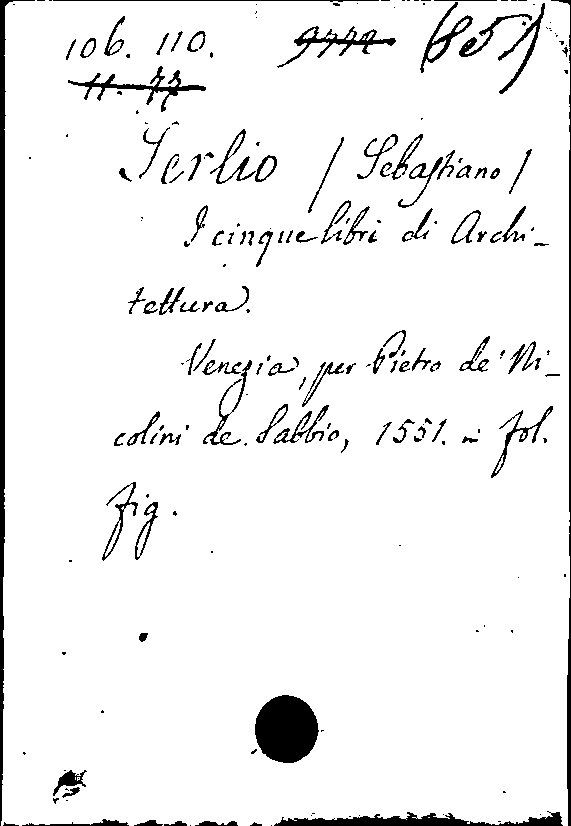 106. 110. 9772 (851)
11. 77
Serlio / Sebastiano /
I cinque libri di Archi-
tettura.
Venezia, per Pietro de' Ni-
colini de Sabbio, 1551. in fol.
fig.